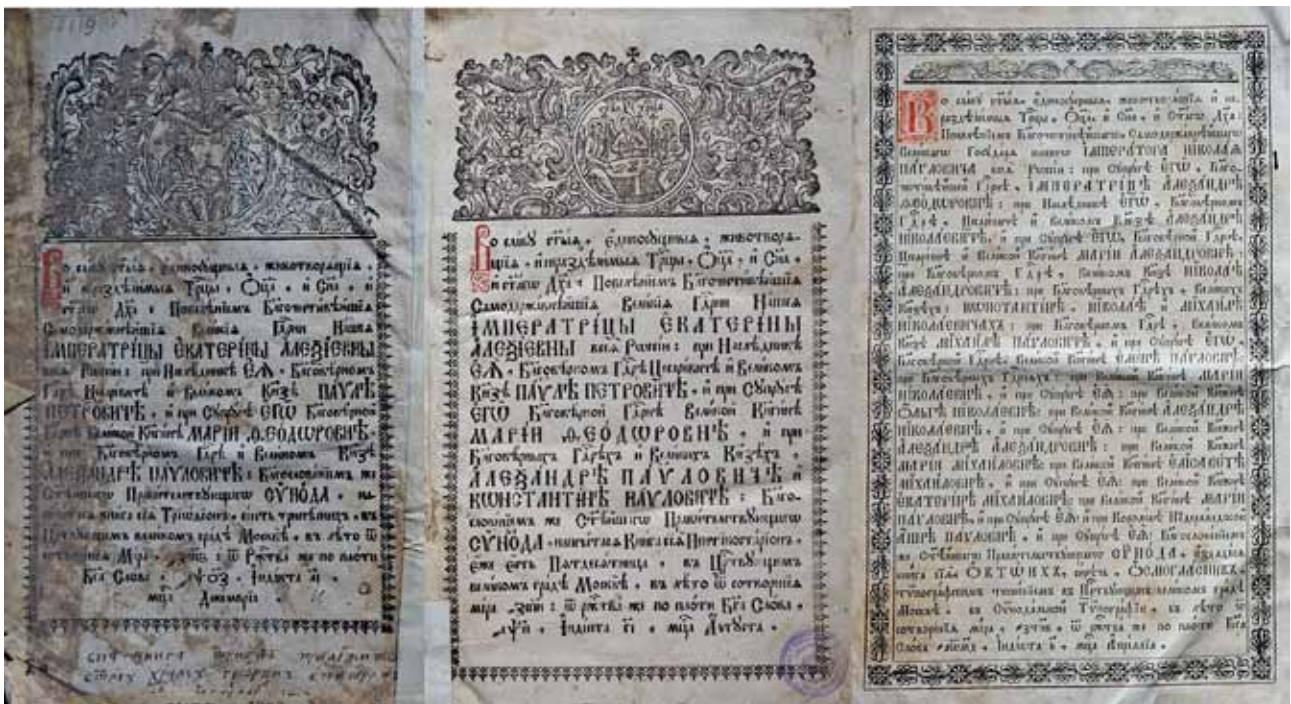 Во славу ст҃ыѧ, єдиносущныѧ, животворѧщїѧ,
и нераздѣлимыѧ Трⷪ҇цы, Ѻц҃а, и Сн҃а, и
ст҃агѡ Дх҃а: Повелѣнїемъ Бл҃гочестивѣйшїѧ
Самодержавнѣйшїѧ Великїѧ Гдⷭ҇рни Нашеѧ
ІМПЕРАТРІЦЫ ЄКАТЕРІНЫ АЛЕѮІЕВНЫ
всеѧ Рѡссїи: при Наслѣдникѣ ЄѦ, Бл҃говѣрномъ
Гдⷭ҇рѣ Цесаревичѣ и Великомъ Кнѧзѣ ПАѴЛѢ
ПЕТРОВИЧѢ, и при Супругѣ ЄГѠ Бл҃говѣрной
Гдⷭ҇рнѣ Великой Кнѧгинѣ МАРІИ ѲЕОДѠРОВНѢ,
и при Бл҃говѣрномъ Гдⷭ҇рѣ и Великомъ Кнѧзѣ
АЛЕѮАНДРѢ ПАѴЛОВИЧѢ: Бл҃гословенїемъ же
Ст҃ѣйшагѡ Правительствующагѡ СѴНОДА, на-
книга сїѧ Трїѡдїон, єсть трипѣснецъ, въ
Царствующемъ великомъ градѣ Москвѣ, въ лѣто ѿ
сотворенїѧ мїра, ѿ Ржⷭ҇тва же по плоти
Бг҃а Слова, ҂аѱоз, Індікта аі,
мцⷭ҇а Декемврїа.
Во славу ст҃ыѧ, єдиносущныѧ, животворѧ-
щїѧ, и нераздѣлимыѧ Трⷪ҇цы, Ѻц҃а, и Сн҃а,
и ст҃агѡ Дх҃а: Повелѣнїемъ Бл҃гочестивѣйшїѧ
Самодержавнѣйшїѧ Великїѧ Гдⷭ҇рни Нашеѧ
ІМПЕРАТРІЦЫ ЄКАТЕРІНЫ
АЛЕѮІЕВНЫ всеѧ Рѡссїи: при Наслѣдникѣ
ЄѦ, Бл҃говѣрномъ Гдⷭ҇рѣ Цесаревичѣ и Великомъ
Кнѧзѣ ПАѴЛѢ ПЕТРОВИЧѢ, и при Супругѣ
ЄГѠ Бл҃говѣрной Гдⷭ҇рнѣ Великой Кнѧгинѣ
МАРІИ ѲЕОДѠРОВНѢ, и при
Бл҃говѣрныхъ Гдⷭ҇рѣхъ и Великихъ Кнѧзѣхъ,
АЛЕѮАНДРѢ ПАѴЛОВИЧѢ и
КѠНСТАНТІНѢ ПАѴЛОВИЧѢ: Бл҃го-
словенїемъ же Ст҃ѣйшагѡ Правительствующагѡ
СѴНОДА, напечатасѧ Книга сїѧ Пентикостарїон,
єже єсть Пѧтдесѧтница, въ Царствующемъ
великомъ градѣ Москвѣ, въ лѣто ѿ сотворенїѧ
мїра ҂зспи: ѿ ржⷭ҇тва же по плоти Бг҃а Слова,
҂аѱп, Індікта гі, мцⷭ҇а Аѵгуста.
Во славу ст҃ыѧ, єдиносущныѧ, животворѧщїѧ и не-
раздѣлимыѧ Трⷪ҇цы, Ѻц҃а, и Сн҃а, и Ст҃агѡ Дх҃а:
Повелѣнїемъ Бл҃гочестивѣйшагѡ Самодержавнѣйшагѡ
Великагѡ Государѧ нашегѡ ІМПЕРАТОРА НІКОЛАѦ
ПАѴЛОВИЧА всеѧ Рѡссїи: при Супругѣ ЄГѠ, Бл҃го-
честивѣйшей Гдⷭ҇рнѣ, ІМПЕРАТРІЦѢ АЛЕѮАНДРѢ
ѲЕОДѠРОВНѢ: при Наслѣдникѣ ЄГѠ, Бл҃говѣрномъ
Гдⷭ҇рѣ, Цесаревичѣ и Великомъ Кнѧзѣ АЛЕѮАНДРѢ
НІКОЛАЕВИЧѢ, и при Супругѣ ЄГѠ, Бл҃говѣрной Гдⷭ҇рнѣ,
Цесаревнѣ и Великой Кнѧгинѣ МАРІИ АЛЕѮАНДРОВНѢ:
при Бл҃говѣрномъ Гдⷭ҇рѣ, Великомъ Кнѧзѣ НІКОЛАѢ
АЛЕѮАНДРОВИЧѢ: при Бл҃говѣрныхъ Гдⷭ҇рѣхъ, Великихъ
Кнѧзѣхъ: КѠНСТАНТІНѢ, НІКОЛАѢ и МІХАИЛѢ
НІКОЛАЕВИЧАХЪ: при Бл҃говѣрномъ Гдⷭ҇рѣ, Великомъ
Кнѧзѣ МІХАИЛѢ ПАѴЛОВИЧѢ, и при Супругѣ ЄГѠ,
Бл҃говѣрной Гдⷭ҇рнѣ Великой Кнѧгинѣ ЄЛЕНѢ ПАѴЛОВНѢ:
при Бл҃говѣрныхъ Гдⷭ҇рнѧхъ: при Великой Кнѧгинѣ МАРІИ
НІКОЛАЕВНѢ, и при Супругѣ ЄѦ: при Великой Кнѧжнѣ
ѺЛЬГѢ НІКОЛАЕВНѢ: при Великой Кнѧгинѣ АЛЕѮАНДРѢ
НІКОЛАЕВНѢ, и при Супругѣ ЄѦ: при Великой Кнѧжнѣ
АЛЕѮАНДРѢ АЛЕѮАНДРОВНѢ: при Великой Кнѧжнѣ
МАРІИ МІХАИЛОВНѢ: при Великой Кнѧгинѣ ЄЛІСАВЕТѢ
МІХАИЛОВНѢ, и при Супругѣ ЄѦ: при Великой Кнѧжнѣ
ЄКАТЕРІНѢ МІХАИЛОВНѢ: при Великой Кнѧгинѣ МАРІИ
ПАѴЛОВНѢ, и при Супругѣ ЄѦ: и при Королевѣ Нідерландской
АННѢ ПАѴЛОВНѢ, и при Супругѣ ЄѦ: Бл҃гословенїемъ
же Ст҃ѣйшагѡ Правительствующагѡ СѴНОДА, издадесѧ
книга сїѧ ѺКТѠИХЪ, сирѣчь, ѺСМОГЛАСНИКЪ,
тѷпографскимъ тисненїемъ въ Царствующемъ великомъ градѣ
Москвѣ, въ Сѷнодальной Тѷпографїи, въ лѣто ѿ
сотворенїѧ мїра, ѿ ржⷭ҇тва же по плоти Бг҃а
Слова Індікта в, мцⷭ҇а Апрїллїа.